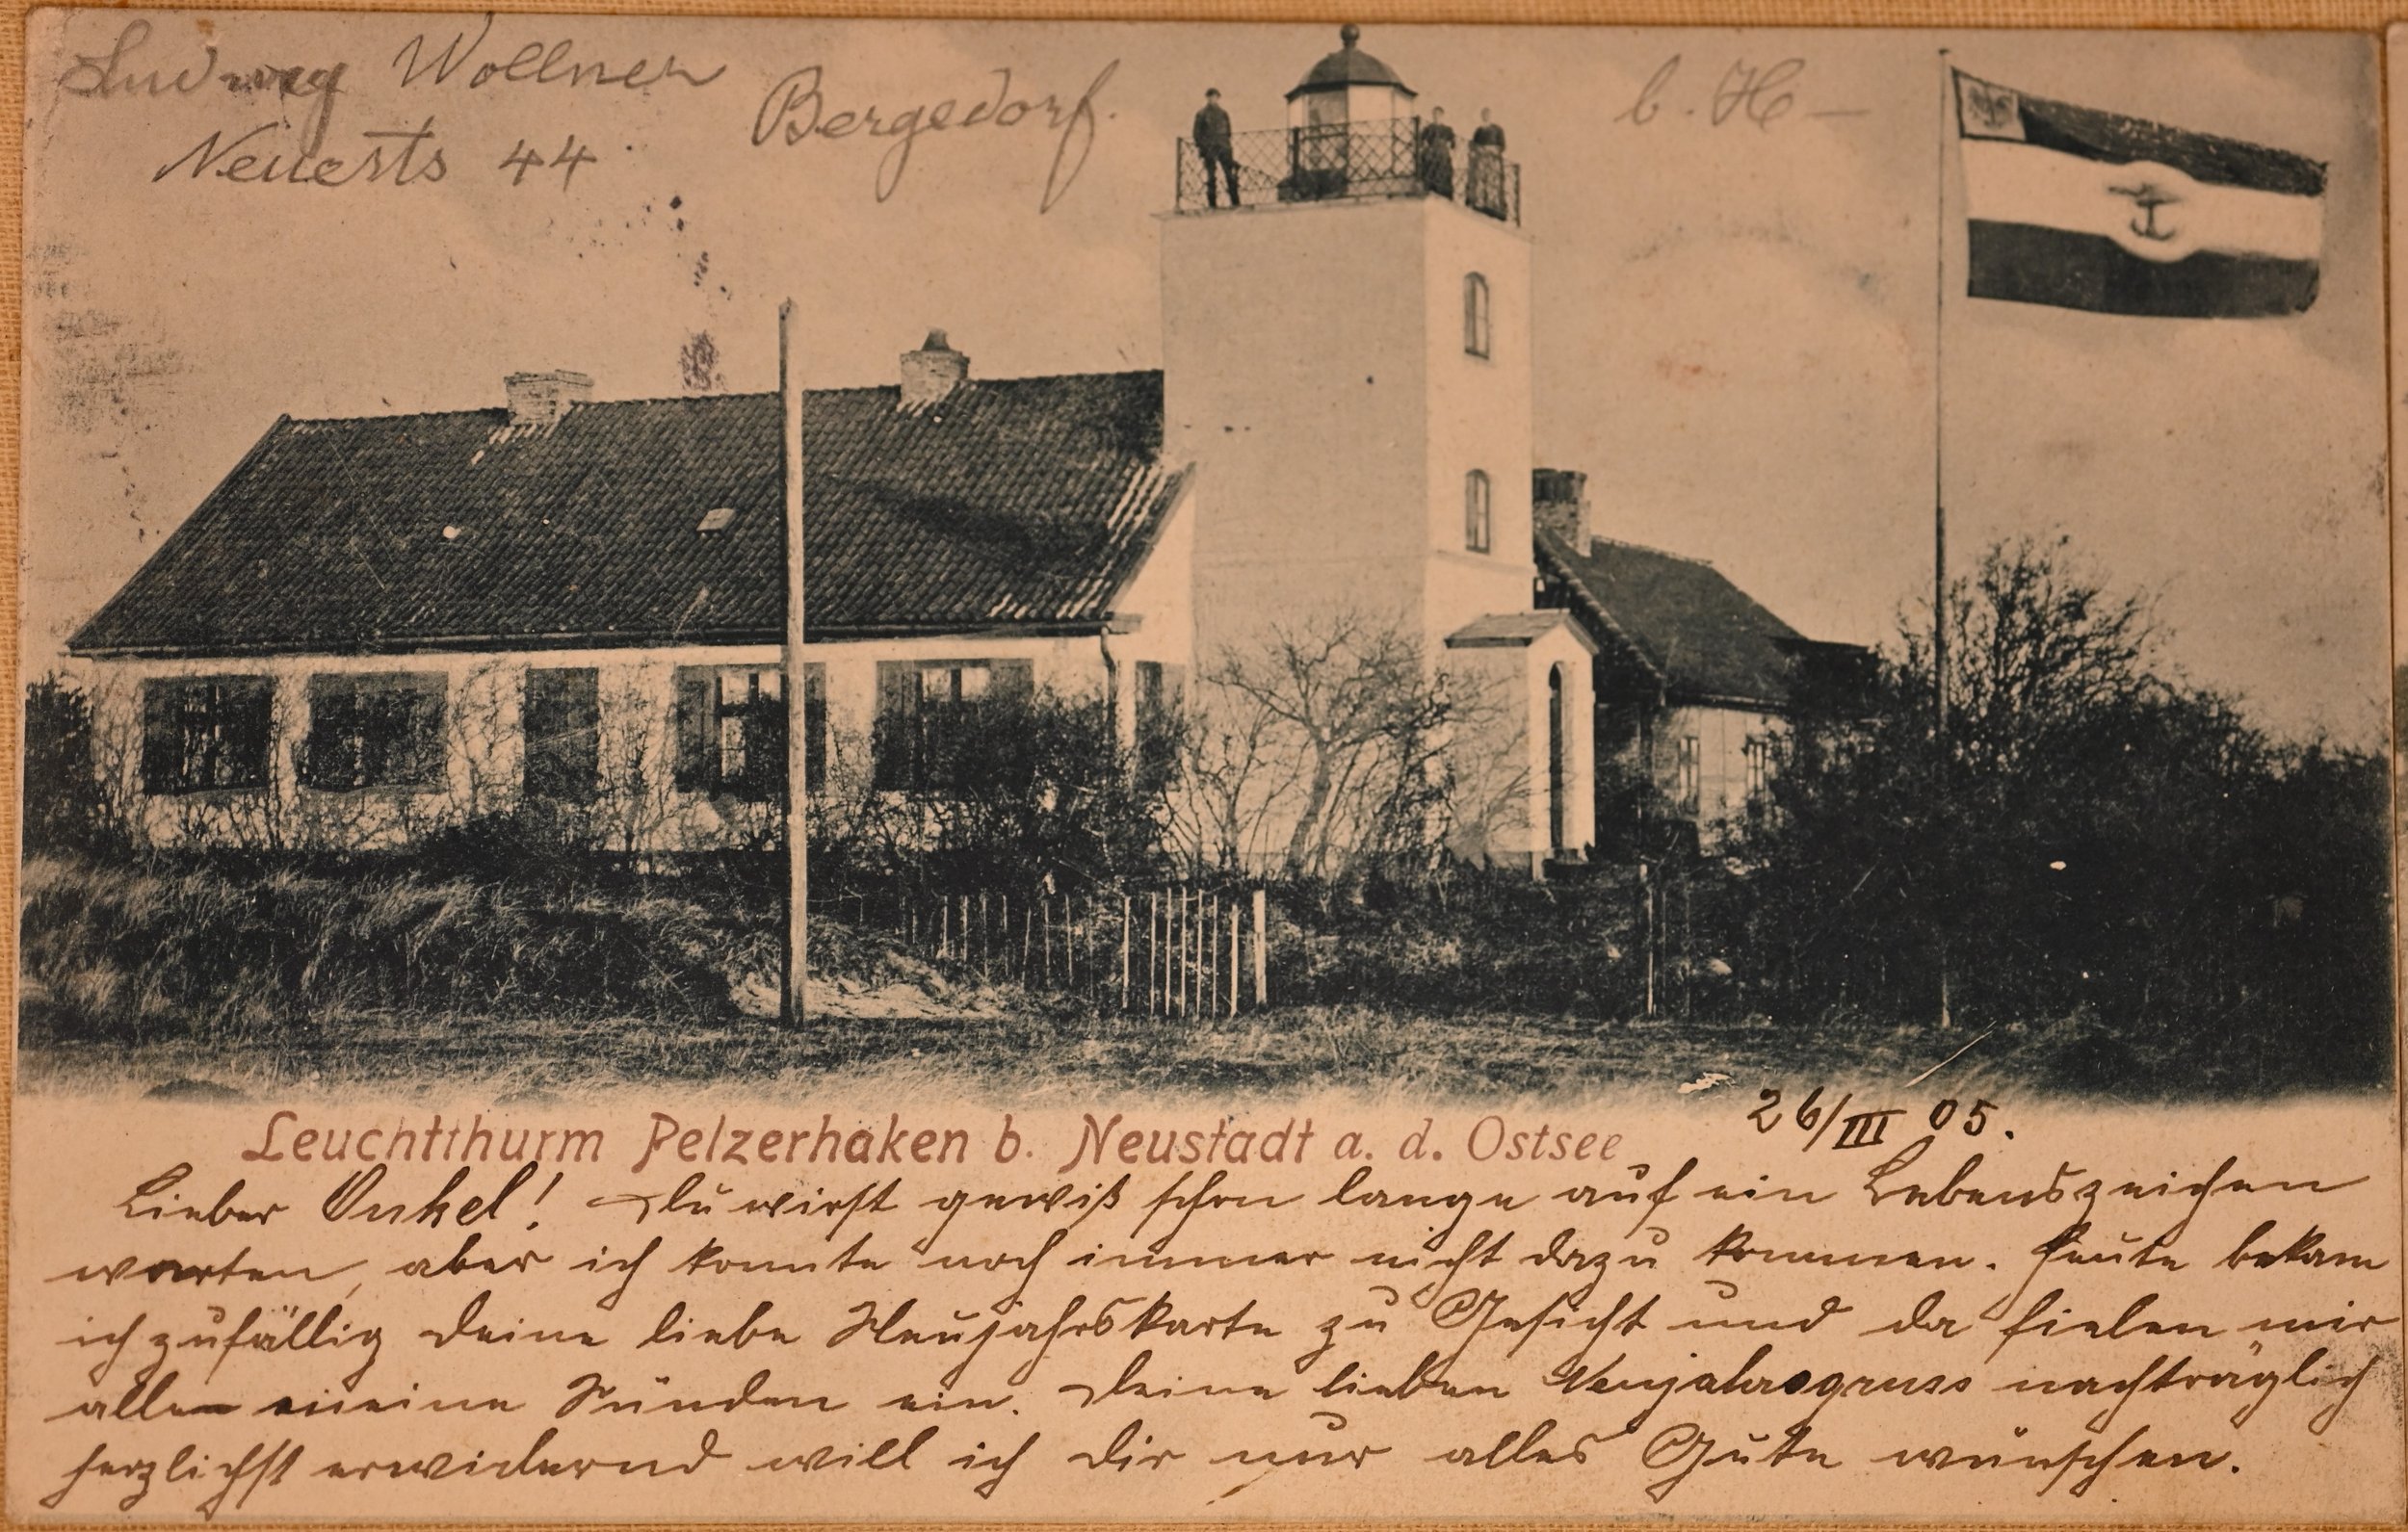 Ludwig Wollner
Bergedorf.
b. H–
Neuerts 44
26/III 05.
Leuchtthurm Pelzerhaken b. Neustadt a. d. Ostsee
Lieber Onkel! Du wirst gewiß schon lange auf ein Lebenszeichen
warten, aber ich konnte noch immer nicht dazu kommen. Heute bekam
ich zufällig Deine liebe Neujahrskarte zu Gesicht und da fielen mir
alle meine Sünden ein. Deine lieben Neujahrsgruss nachträglich
herzlichst erwidernd will ich Dir nur alles Gute wünschen.